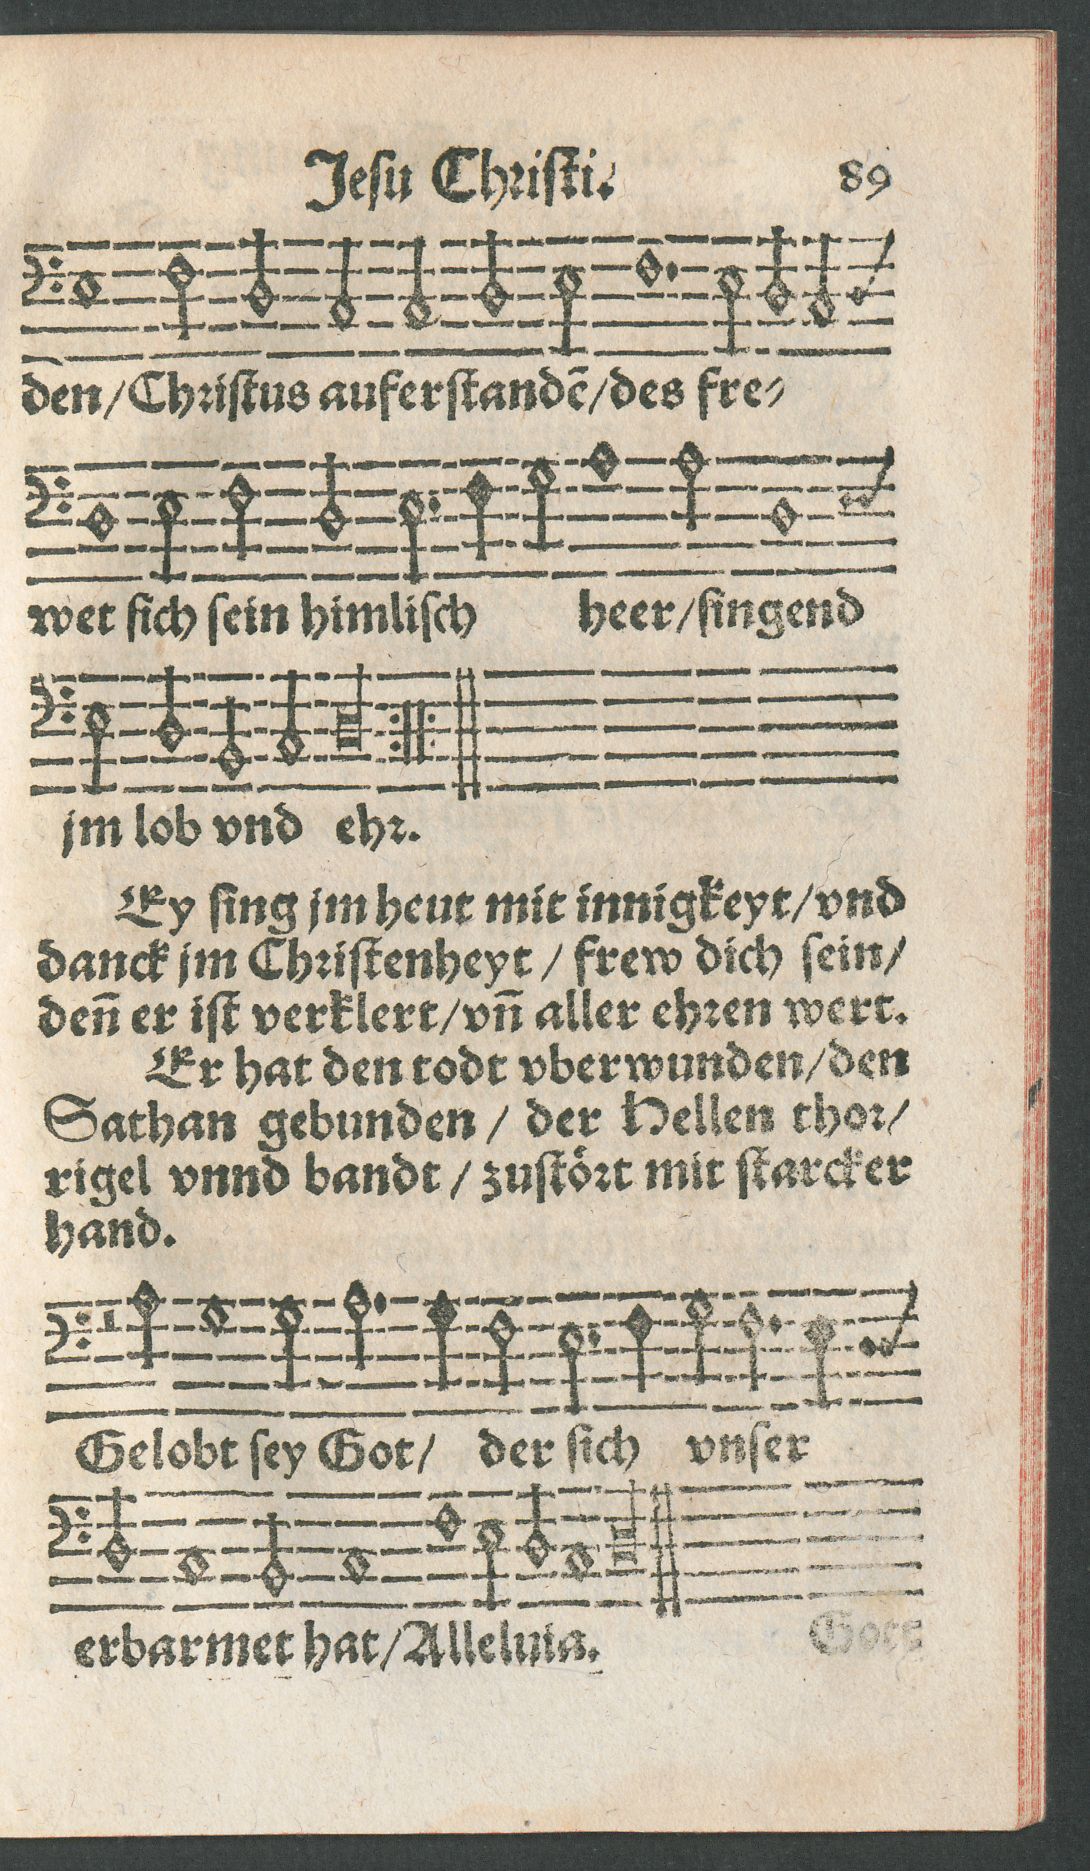 Jesu Christi. 89
den/Christus auferstandē/des fre⸗
wet sich sein himlisch heer/singend
jm lob vnd ehr.
Ey sing jm heut mit innigkeyt/vnd
danck jm Christenheyt / frew dich sein/
deñ er ist verklert/vñ aller ehren wert.
Er hat den todt vberwunden/den
Sathan gebunden / der Hellen thor/
rigel vnnd bandt / zustört mit starcker
hand.
Gelobt sey Got/ der sich vnser
erbarmet hat/Alleluia.